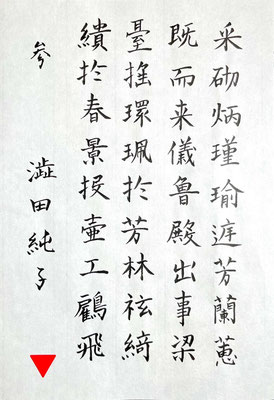 采砌炳瑾瑜逬芳蘭蕙
既而来儀魯殿出事梁
臺搖環珮於芳林袨綺
繢於春景投壺工鶴飛
参 澁田純子